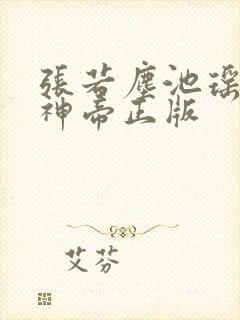 張若塵池瑤
神帝正版
艾芬